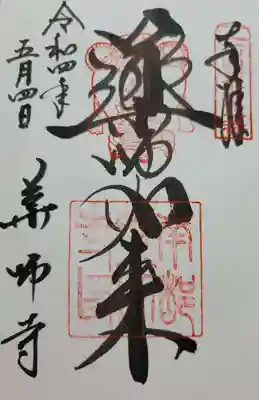 奉拝
薬師如来
令和四年
五月四日
薬師寺